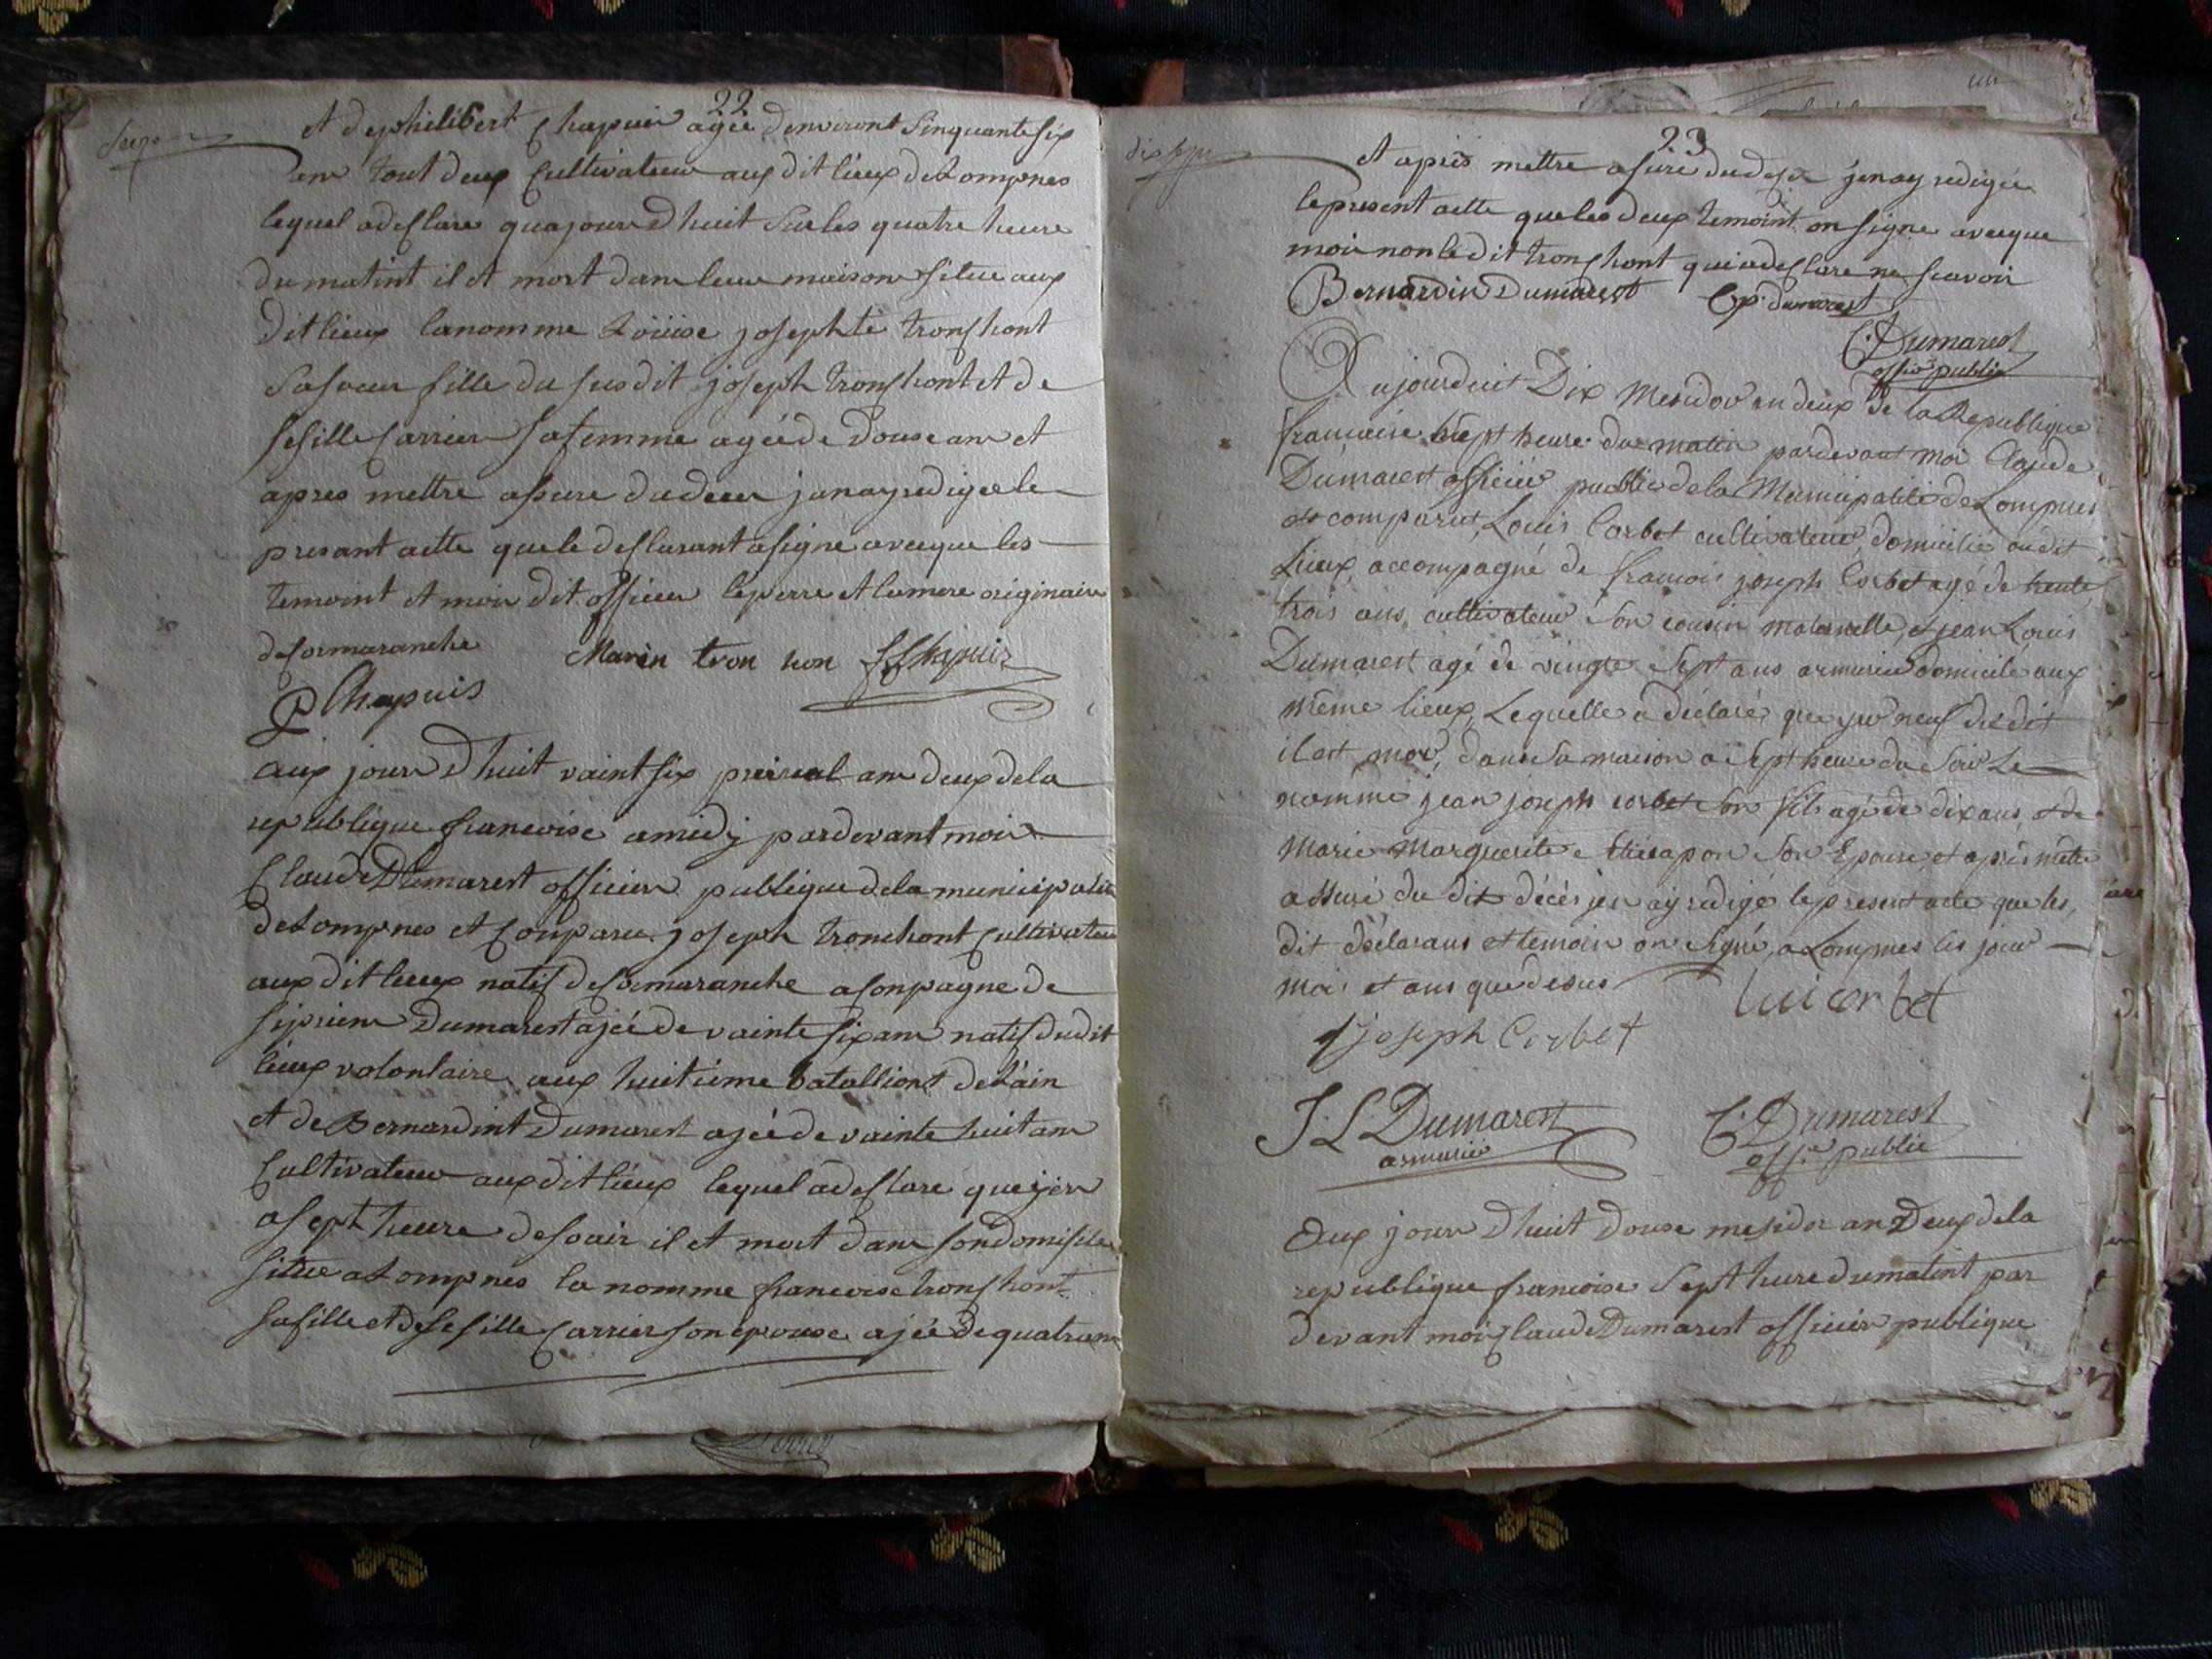 22
et dephilibert Chapuis agée denviront sinquante six
ans tout deux Cultivateur aux dit lieux de Lompnes
lequel a desClare quajourdhuit sur les quatre heure
du matint il et mort dans leur maison situe aux
dit lieux la nomme Loüise josephte tronchont
sa soeur fille du susdit joseph tronchont et de
sesille Carrier sa femme agée de Douse ans et
apres mettre assure du deces janay redigee le
presant actte que le desClarant a signe avecque les
temoint et moi dit officier le perre et la mere originaire
de Cormaranche Marin tron hon
P Chapuis
aux jour Dhuit vaint six prairial an deux de la
republique francoise a midy par devant moi
Claude Dumarest officier publique de la municipalite
de Lompnes et Conparu joseph tronchont Cultivateur
aux dit lieux natif de Cormaranche aConpagne de
siprien Dumarest ajée de vainte six ans natif du dit
lieux volontaire aux huitieme batalliont de Lain
et de Bernardint Dumarest ajée de vainte huit ans
Cultivateur aux dit lieux lequel a desClare que yer
a sept heure de soir il et mort dans son domisile
situe a Lompnes la nomme francoise tronchont
sa fille et de sesille Carrier son epouse ajée de quatrans
23
et apris mettre asure du deses jenay redigée
le present actte que les deux temoint on signe avecque
moi non le dit tronchont qui a desClare ne scavoir
Bernardin Dumarest Cp. dumarest
C. Dumarest
offier public
Aujourduit Dix Mesidor an deux de la Republique
francaise sept heure du matin pardevant moi Claude
Dumarest officier public de la Municipalité de Lompnes
est comparut Louis Corbet cultivateur domicilié audit
Lieux, accompagné de francois joseph Corbet agé de trente
trois ans, cultivateur son cousin maternelle, et jean Louis
Dumarest agé de vingte sept ans armurier domicilé aux
même lieux, Lequelle a déclaré, que jer neuf dudit
il est mor, dans sa maison a sept heure du soir Le
nommé jean joseph corbet son fils agé de dix ans et de
Marie Marguerite son Epouse, et après mêtre
assuré du dit décés jen ay redigé le present acte que les
dit déclarans et temoin on signé, a Lompnes les jour
moi et ans que desus
Lui corbet
fjoseph Corbet
J. L. Dumarest
armurier
C. Dumarest
offier public
Aux jour Dhuit Douse mesidor an Deux de la
republique francoise sept heure du matint par
devant moi Claude Dumarest officier publique